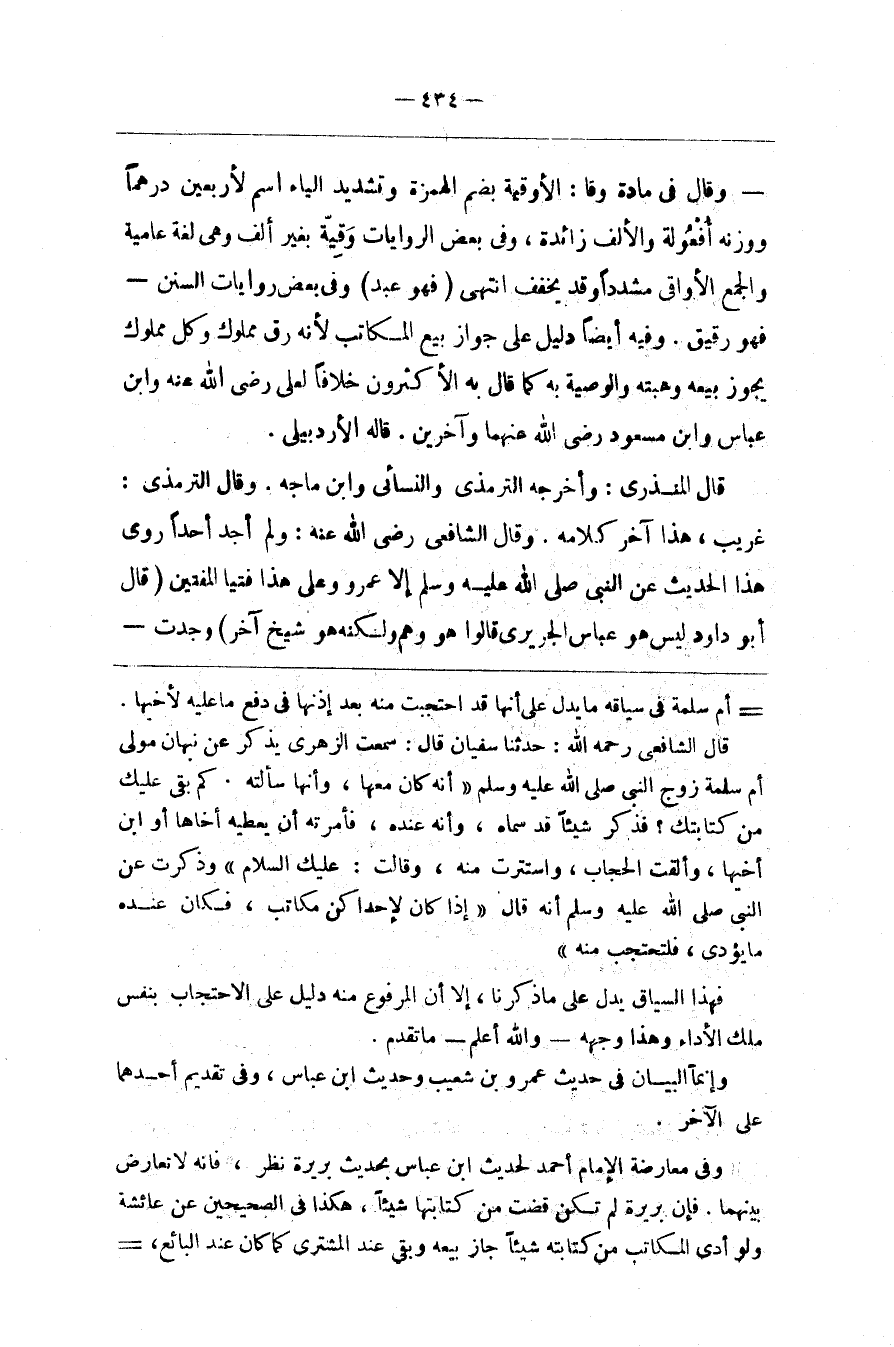 — ٤٣٤ —
— وقال فى مادة وقا : الأوقية بضم الهمزة وتشديد الياء اسم لأربعين درهماً
ووزنه أُفْعُولة والألف زائدة ، وفى بعض الروايات وَقِيّة بغير ألف وهى لغة عامية
والجمع الأواقى مشدداً وقد يخفف انتهى ( فهو عبد ) وفى بعض روايات السنن —
فهو رقيق . وفيه أيضاً دليل على جواز بيع المكاتب لأنه رق مملوك وكل مملوك
يجوز بيعه وهبته والوصية به كما قال به الأكثرون خلافاً لعلى رضى الله عنه وابن
عباس وابن مسعود رضى الله عنهما وآخرين . قاله الأردبيلى .
قال المنذرى : وأخرجه الترمذى والنسائى وابن ماجه . وقال الترمذى :
غريب ، هذا آخر كلامه . وقال الشافعى رضى الله عنه : ولم أجد أحداً روى
هذا الحديث عن النبى صلى الله عليه وسلم إلا عمرو وعلى هذا فتيا المفتين ( قال
أبو داود ليس هو عباس الجريرى قالوا هو وهم ولكنه هو شيخ آخر ) وجدت —
= أم سلمة فى سياقه مايدل على أنها قد احتجبت منه بعد إذنها فى دفع ماعليه لأخيها .
قال الشافعى رحمه الله : حدثنا سفيان قال : سمعت الزهرى يذكر عن نبهان مولى
أم سلمة زوج النبى صلى الله عليه وسلم « أنه كان معها ، وأنها سألته . كم بقى عليك
من كتابتك ؟ فذكر شيئاً قد سماه ، وأنه عنده ، فأمرته أن يعطيه أخاها أو ابن
أخيها ، وألقت الحجاب ، واستترت منه ، وقالت : عليك السلام » وذكرت عن
النبى صلى الله عليه وسلم أنه قال « إذا كان لإحداكن مكاتب ، فكان عنده
مايؤدى ، فلتحتجب منه »
فهذا السياق يدل على ماذكرنا ، إلا أن المرفوع منه دليل على الاحتجاب بنفس
ملك الأداء وهذا وجهه — والله أعلم — ماتقدم .
وإنما البيان فى حديث عمرو بن شعيب وحديث ابن عباس ، وفى تقديم أحدهما
على الآخر .
وفى معارضة الإمام أحمد لحديث ابن عباس بحديث بريرة نظر ، فانه لاتعارض
بينهما . فإن بريرة لم تكن قضت من كتابتها شيئاً ، هكذا فى الصحيحين عن عائشة
ولو أدى المكاتب من كتابته شيئاً جاز بيعه وبقى عند المشترى كما كان عند البائع، =